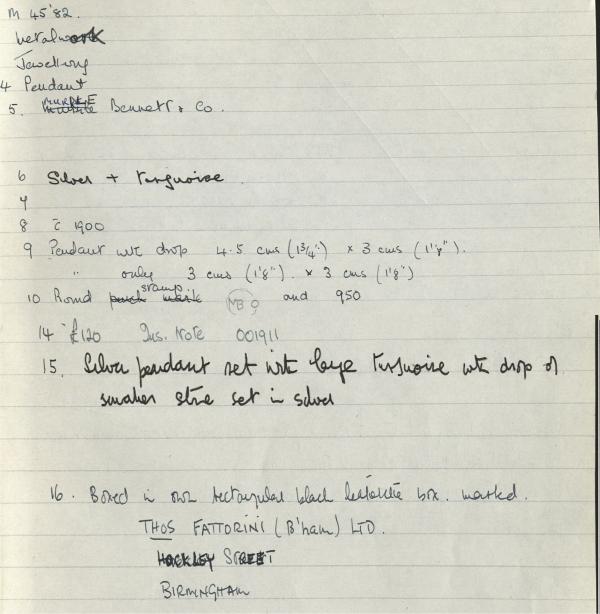 M 45'82.
Metalwork
Jewellery
4 Pendant
5. MURRLE Bennett & Co.
6 Silver + turquoise
7
8 c 1900
9 Pendant with drop 4.5 cms (1 3/4") x 3 cms (1 1/8").
" only 3 cms (1 1/8"). x 3 cms (1 1/8")
10 Round stamp MB and 950
14 £120 Ins. Note 001911
15. Silver pendant set with large turquoise with drop of
smaller stone set in silver
16. Boxed in own rectangular black leatherette box. marked.
THOS FATTORINI (B'ham) LTD.
HOCKLEY STREET
BIRMINGHAM